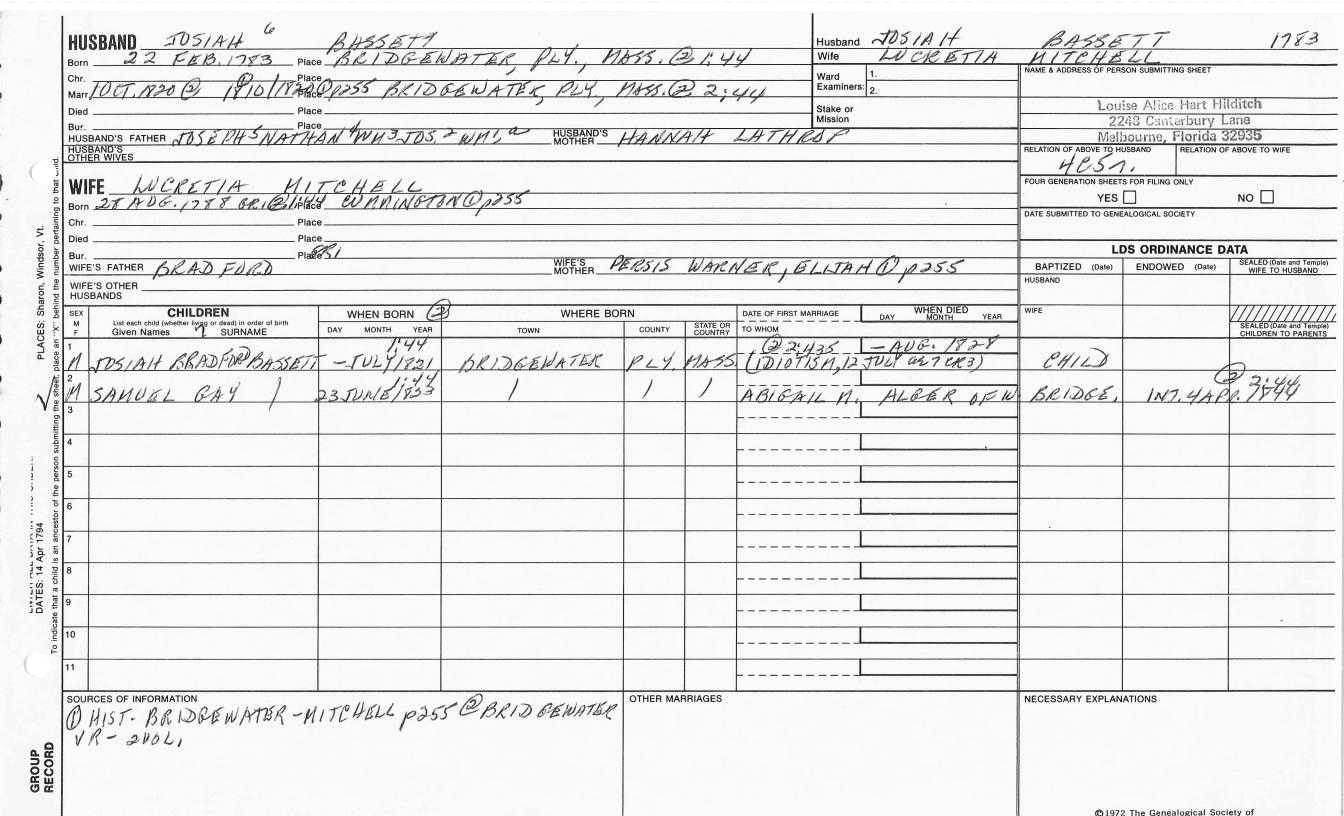 HUSBAND JOSIAH 6 BASSETT
Born 22 FEB. 1783 Place BRIDGEWATER, PLY., MASS. ② 1:44
Chr. Place
Marr. 1 OCT. 1820 ② ① p255 BRIDGEWATER, PLY., MASS. ② 2:44
Died Place
Bur. Place
HUSBAND'S FATHER JOSEPH 5 NATHAN 4 WM 3 JOS. 2 WM. 1 HUSBAND'S MOTHER HANNAH LATHROP
HUSBAND'S OTHER WIVES
WIFE LUCRETIA MITCHELL
Born 28 AUG. 1788 1:44 Place CUMMINGTON ① p255
Chr. Place
Died Place
Bur. Place
WIFE'S FATHER BRADFORD WIFE'S MOTHER PERSIS WARNER, ELIJAH ① p255
WIFE'S OTHER HUSBANDS
Husband JOSIAH BASSETT 1783
Wife LUCRETIA MITCHELL
Ward Examiners: 1.
2.
Stake or Mission
NAME & ADDRESS OF PERSON SUBMITTING SHEET
Louise Alice Hart Hilditch
2248 Canterbury Lane
Melbourne, Florida 32935
RELATION OF ABOVE TO HUSBAND RELATION OF ABOVE TO WIFE
FOUR GENERATION SHEETS FOR FILING ONLY
YES NO
DATE SUBMITTED TO GENEALOGICAL SOCIETY
LDS ORDINANCE DATA
BAPTIZED (Date) ENDOWED (Date) SEALED (Date and Temple) WIFE TO HUSBAND
HUSBAND
WIFE
SEALED (Date and Temple) CHILDREN TO PARENTS
SEX M F
CHILDREN
List each child (whether living or dead) in order of birth
Given Names 7 SURNAME
WHEN BORN ②
DAY MONTH YEAR
WHERE BORN
TOWN COUNTY STATE OR COUNTRY
DATE OF FIRST MARRIAGE
TO WHOM
WHEN DIED
DAY MONTH YEAR
1:44 ② 2:435 – AUG. 1828
1 M JOSIAH BRADFORD BASSETT – JULY 1821 BRIDGEWATER PLY. MASS. (IDIOTISM, 12 JULY ae 7 CR3) CHILD
1:44 ② 2:44
2 M SAMUEL GAY 23 JUNE ABIGAIL M. ALGER OF W BRIDGE, INT. 4 APR. 1844
3
4
5
6
7
8
9
10
11
SOURCES OF INFORMATION
① HIST- BRIDGEWATER -MITCHELL p255 ② BRIDGEWATER
VR - 2VOL.
OTHER MARRIAGES
NECESSARY EXPLANATIONS
©1972 The Genealogical Society of
PLACES: Sharon, Windsor, Vt.
DATES: 14 Apr 1794
To indicate that a child is an ancestor of the person submitting the sheet, place an "X" behind the number pertaining to that child.
GROUP RECORD